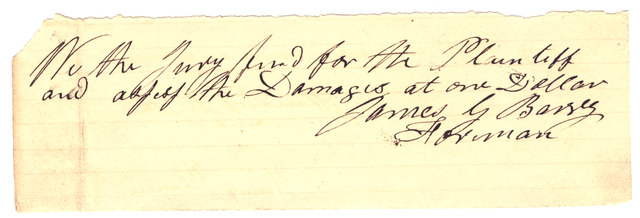 We the Jury find for the Plaintiff
and assess the Damages at one Dollar
James G
Foreman